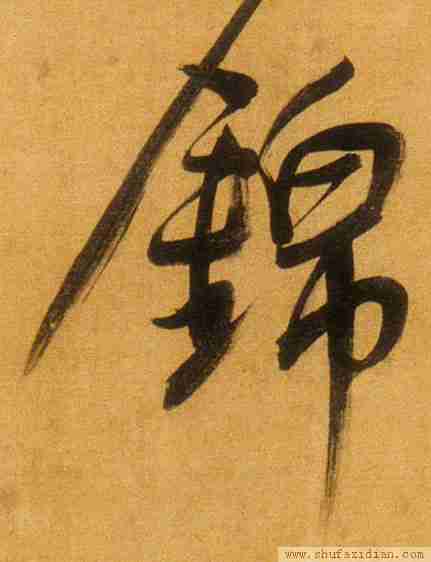 錦
www.shufazidian.com